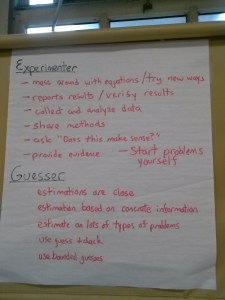 Experimenter
- mess around with equations/try new ways
- reports results/verify results
- collect and analyze data
- share methods
- ask "Does this make sense?"
- provide evidence - Start problems
yourself
Guesser
estimations are close
estimation based on concrete information
estimate on lots of types of problems
use guess & check
use bounded guesses